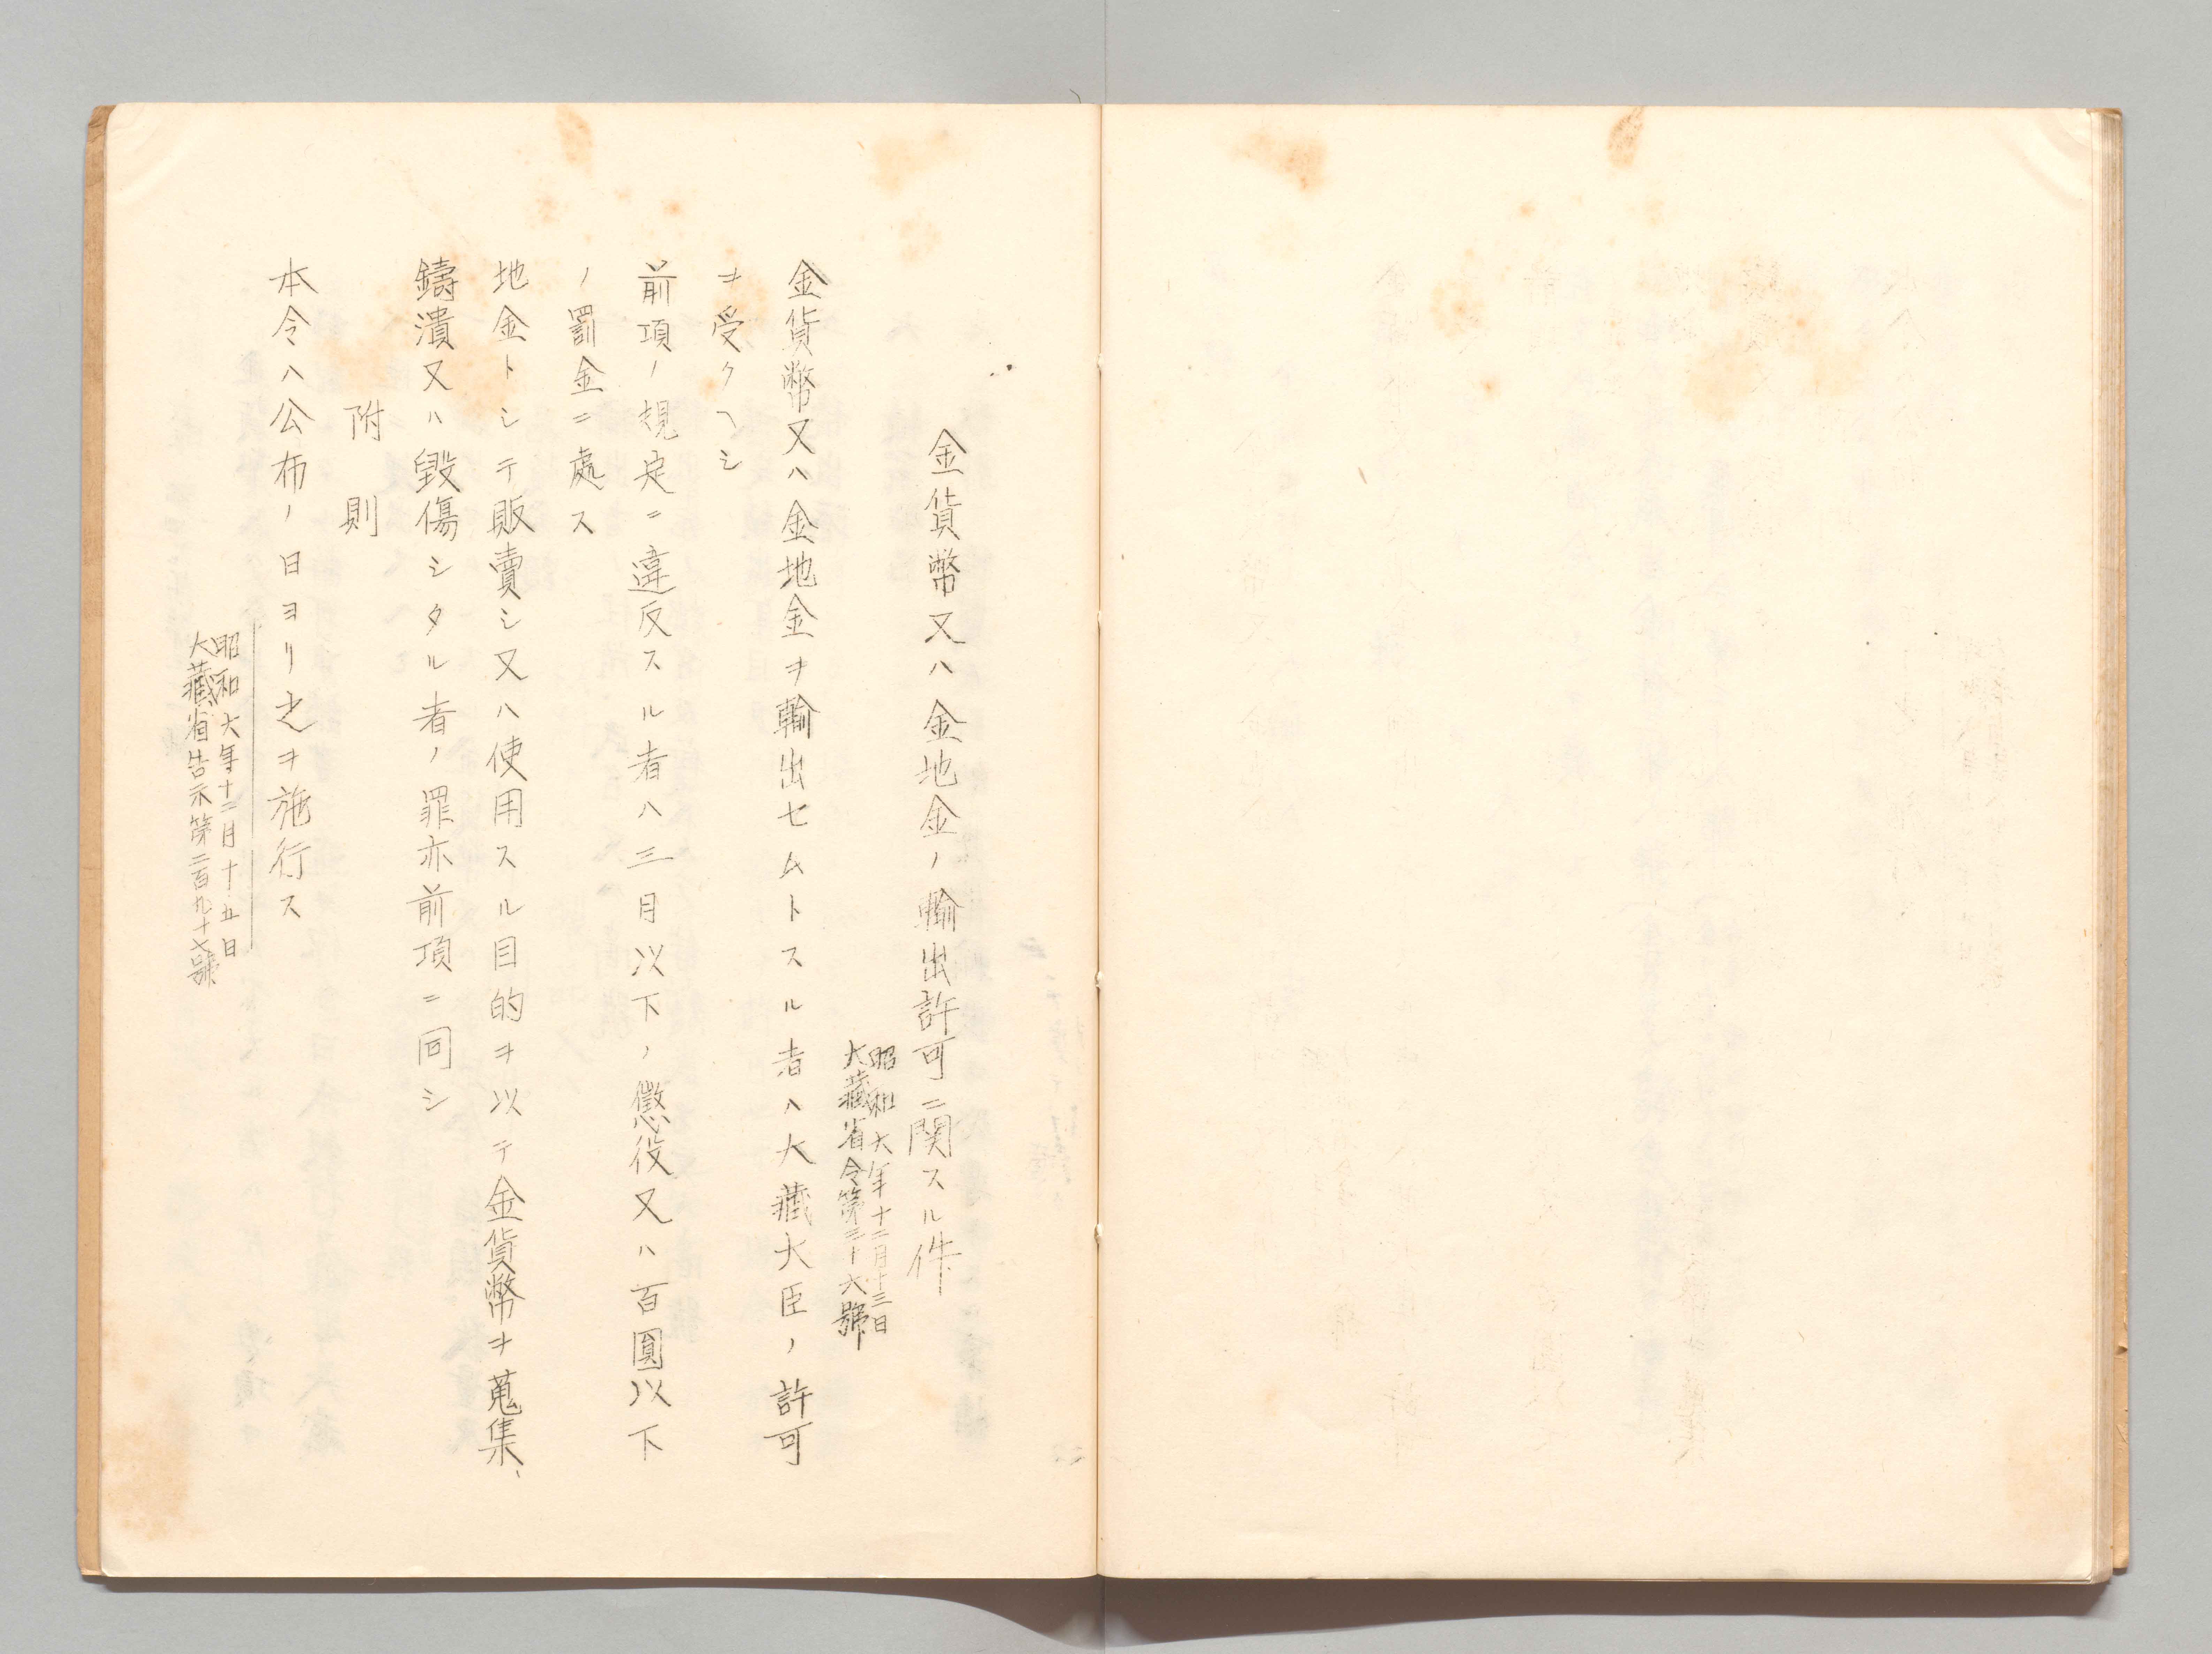 金貨幣又ハ金地金ノ輸出許可ニ関スル件
昭和六年十二月十三日
大藏省令第三十六號
金貨幣又ハ金地金ヲ輸出セムトスル者ハ大藏大臣ノ許可
ヲ受クヘシ
前項ノ規定ニ違反スル者ハ三月以下ノ懲役又ハ百圓以下
ノ罰金ニ處ス
地金トシテ販賣シ又ハ使用スル目的ヲ以テ金貨幣ヲ蒐集、
鑄潰又ハ毀傷シタル者ノ罪亦前項ニ同シ
附則
本令ハ公布ノ日ヨリ之ヲ施行ス
昭和六年十二月十五日
大藏省告示第二百九十七號